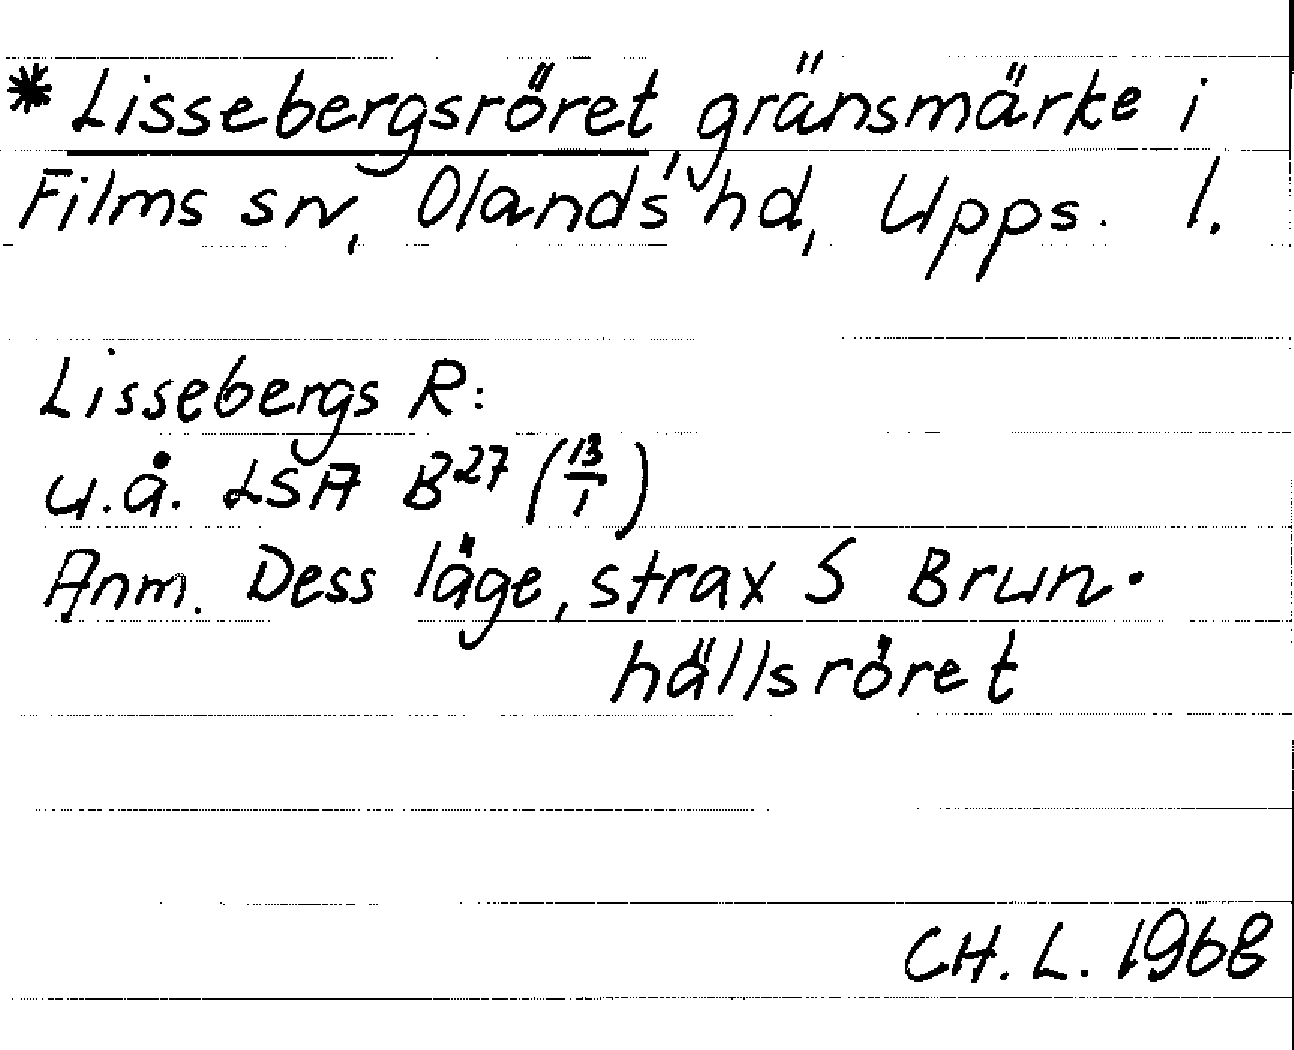 * Lissebergsröret, gränsmärke i
Films sn, Olands hd, Upps. l.
Lissebergs R:
u.å. LSA B27 (13/1)
Anm. Dess läge, strax S Brun-
hällsröret
CH. L. 1968